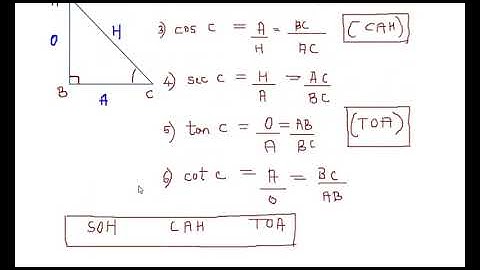 3) cos C = A/H = BC/AC (CAH)
O H
B A C
4) sec C = H/A = AC/BC
5) tan C = O/A = AB/BC (TOA)
6) cot C = A/O = BC/AB
SOH CAH TOA